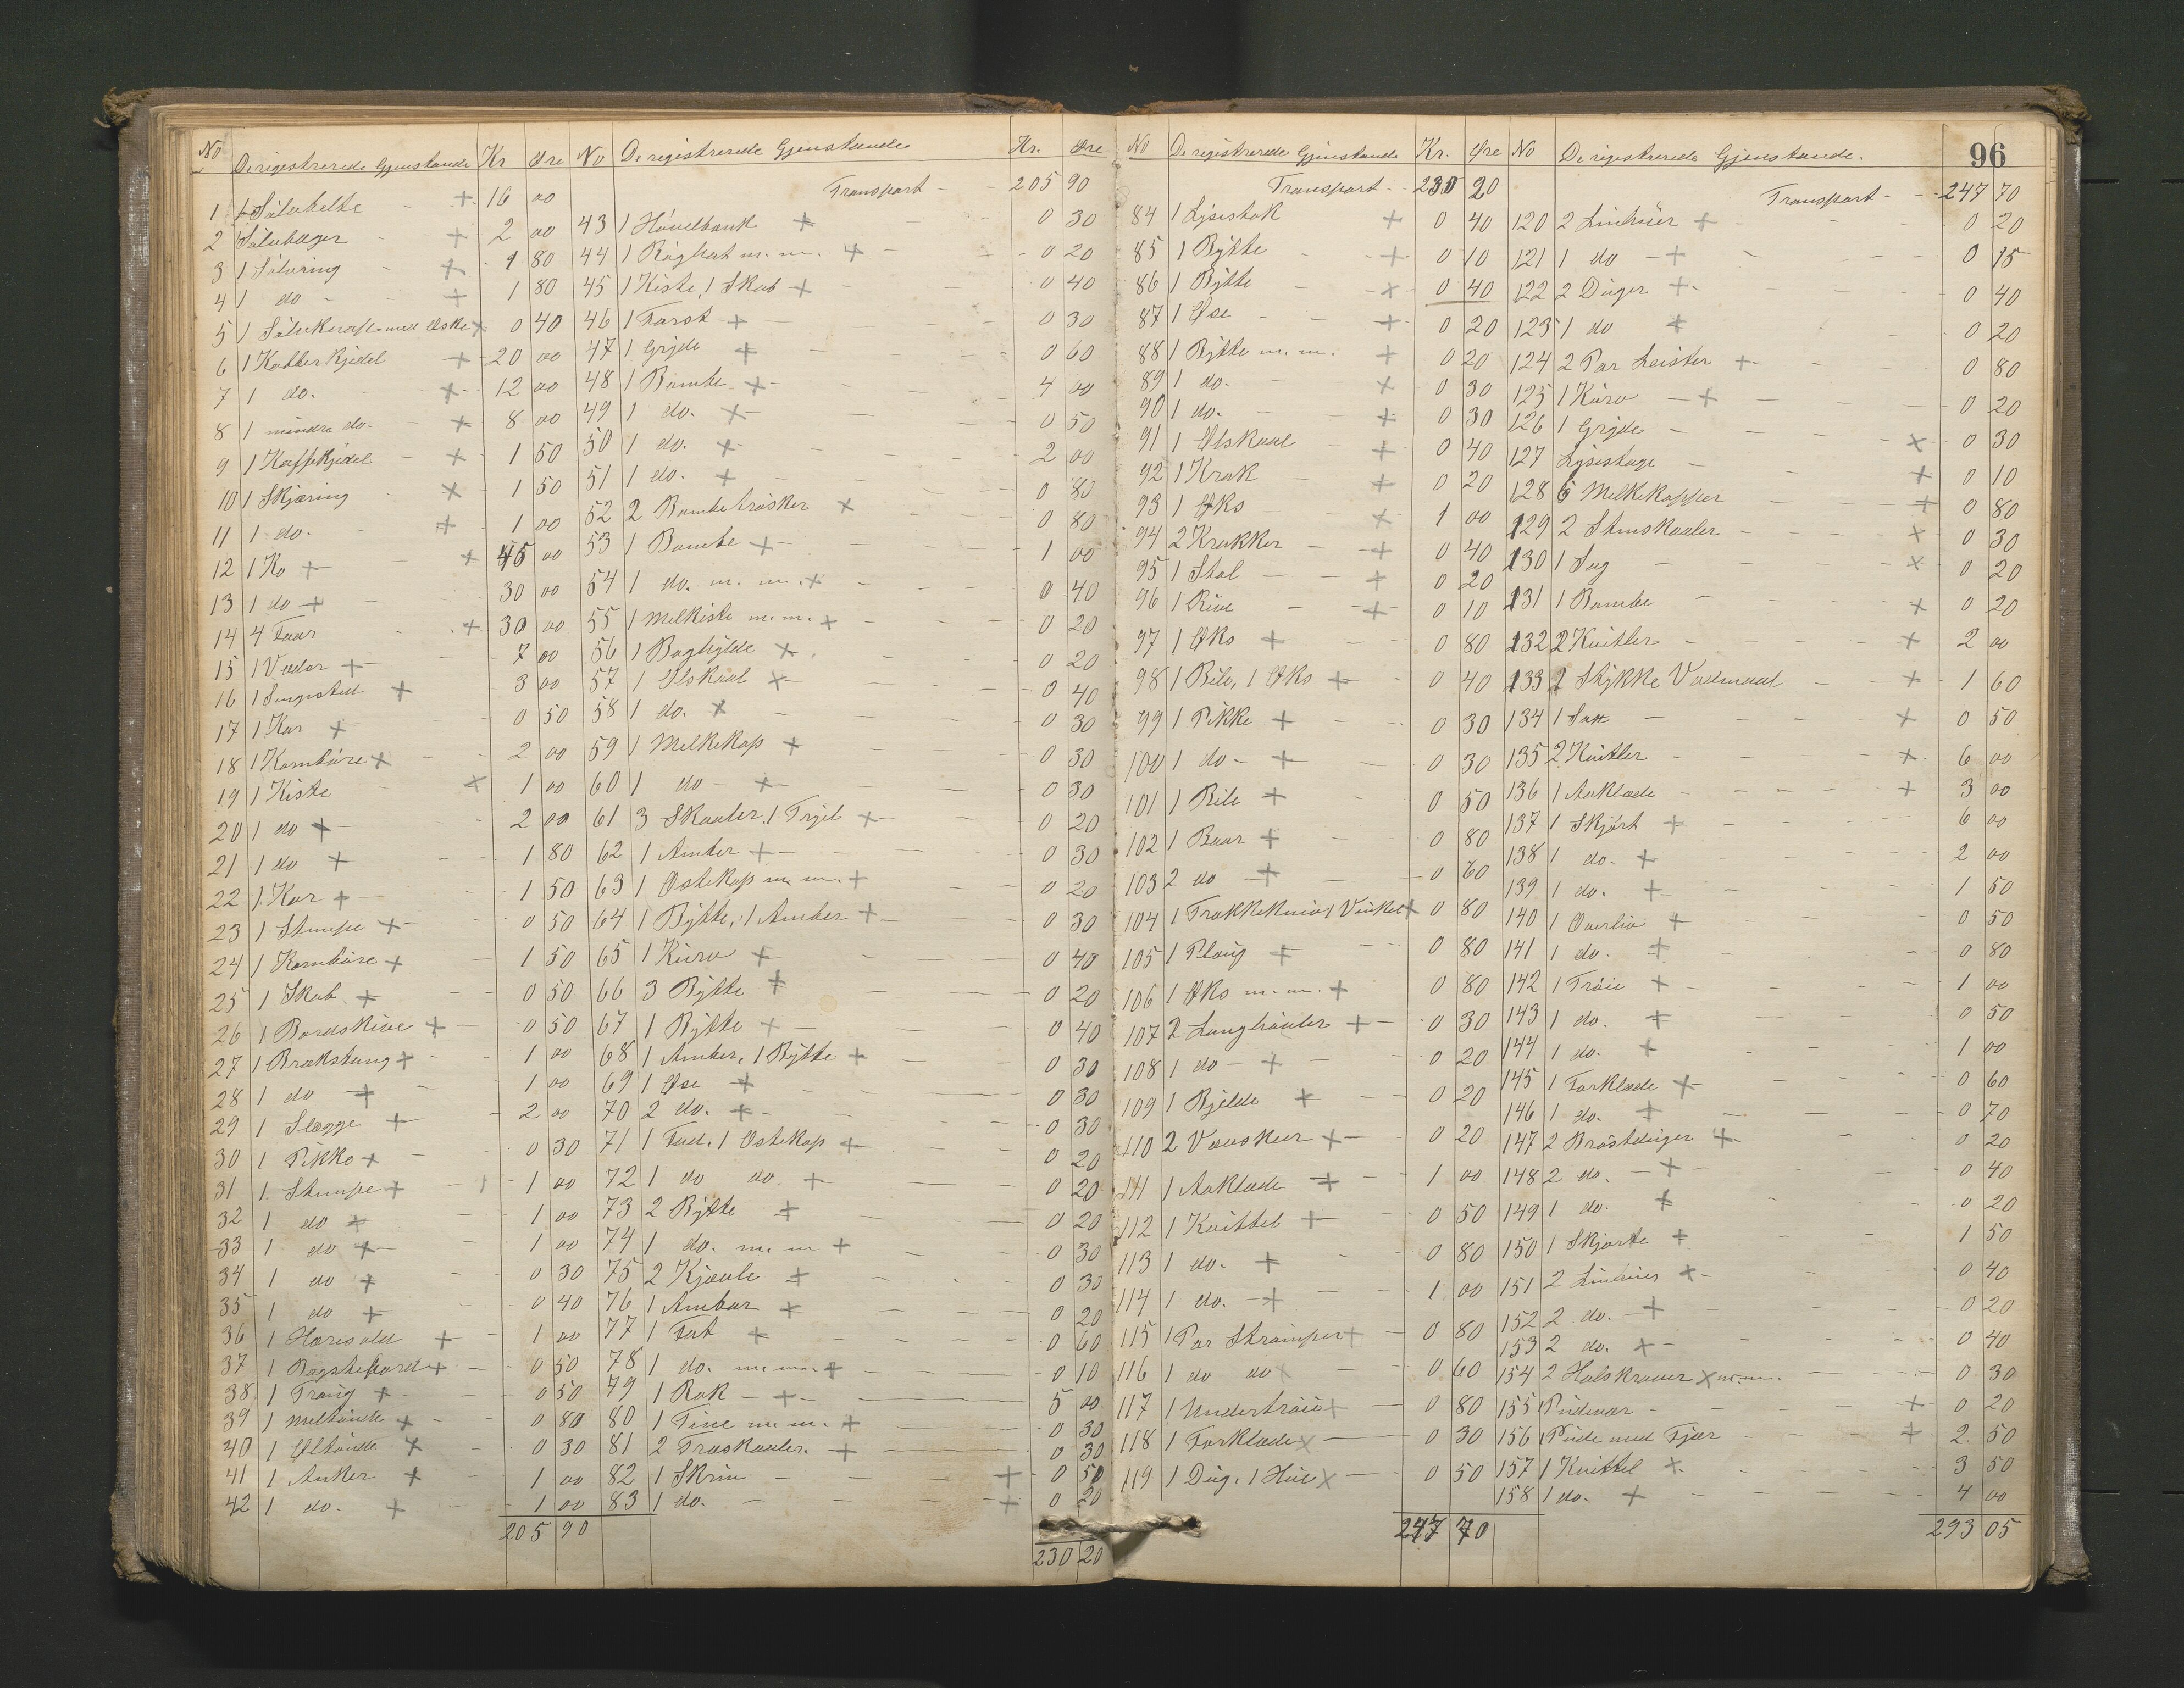 96
No De registrerede Gjenstande Kr Øre
1 1 Sølvbelte + 16 00
2 1 Sølvbæger + 2 00
3 1 Sølvring + 1 80
4 1 do + 1 80
5 1 Sølvknap med Æske + 0 40
6 1 Kobberkjedel + 20 00
7 1 do. + 12 00
8 1 mindre do. + 8 00
9 1 Kaffekjedel + 1 50
10 1 Skjæring + 1 50
11 1 do. + 1 00
12 1 Ko + + 45 00
13 1 do + 30 00
14 4 Faar + 30 00
15 1 Vædar + 7 00
16 1 Sengested + 3 00
17 1 Kar + 0 50
18 1 Kornbøre + 2 00
19 1 Kiste + 1 00
20 1 do + 2 00
21 1 do + 1 80
22 1 Kar + 1 50
23 1 Stampe + 0 50
24 1 Kornbøre + 1 50
25 1 Skab + 0 50
26 1 Bordskive + 0 50
27 1 Brækstang + 1 00
28 1 do + 1 00
29 1 Slægge + 2 00
30 1 Pikke + 0 30
31 1 Stampe + 1 00
32 1 do + 1 00
33 1 do + 1 00
34 1 do + 0 30
35 1 do + 0 40
36 1 Haresold + 1 00
37 1 Bagstefjord + 0 50
38 1 Traug + 0 50
39 1 Meltønde + 0 80
40 1 Øltønde + 0 30
41 1 Anker + 1 00
42 1 do. + 1 00
205 90
No De registrerede Gjenstande Kr. Øre
Transport 205 90
43 1 Høvelbænk + 0 30
44 1 m. m. + 0 20
45 1 Kiste, 1 Skab + 0 40
46 1 Farst + 0 30
47 1 Gryde + 0 60
48 1 Bambe + 4 00
49 1 do. + 0 50
50 1 do. + 2 00
51 1 do. + 0 80
52 2 Bambetrøsker + 0 80
53 1 Bambe + 1 00
54 1 do. m. m. + 0 40
55 1 Melkiste m. m. + 0 20
56 1 Baghylde + 0 20
57 1 Ølskaal + 0 40
58 1 do. + 0 30
59 1 Melkekap + 0 30
60 1 do + 0 30
61 3 Skaaler, 1 TrYel + 0 20
62 1 Amber + 0 30
63 1 Ostekap m. m. + 0 20
64 1 Bytte, 1 Amber + 0 30
65 1 Kurv + 0 40
66 3 Bytte + 0 20
67 1 Bytte + 0 40
68 1 Amber, 1 Bytte + 0 30
69 1 Øse + 0 30
70 2 do. + 0 30
71 1 Fad, 1 Ostekap + 0 20
72 1 do do + 0 20
73 2 Bytte + 0 20
74 1 do. m. m + 0 30
75 2 Kjævle + 0 30
76 1 Ambar + 0 20
77 1 Fat + 0 60
78 1 do. m. m. + 0 10
79 1 Rok + 5 00
80 1 Tine m. m. + 0 30
81 2 Træskaaler + 0 30
82 1 Skrin + 0 50
83 1 do. + 0 20
230 20
No De registrerede Gjenstande Kr. Øre
Transport 230 20
84 1 Lysestok + 0 40
85 1 Bytte + 0 10
86 1 Bytte + 0 40
87 1 Øse + 0 20
88 1 Bytte m. m. + 0 20
89 1 do. + 0 30
90 1 do. + 0 30
91 1 Ølskaal + 0 40
92 1 Krak + 0 20
93 1 Øks + 1 00
94 2 Krakker + 0 40
95 1 Stol + 0 20
96 1 Rive + 0 10
97 1 Øks + 0 80
98 1 Bile, 1 Øks + 0 40
99 1 Pikke + 0 30
100 1 do + 0 30
101 1 Bile + 0 50
102 1 Baar + 0 80
103 2 do + 0 60
104 1 Trakkekniv 1 Vinkel + 0 80
105 1 Ploug + 0 80
106 1 Øks m. m. + 0 80
107 2 Langhøvler + 0 30
108 1 do + 0 20
109 1 Bjelde + 0 20
110 2 + 0 20
111 1 Aaklæde + 1 00
112 1 Kvittel + 0 50
113 1 do. + 0 80
114 1 do. + 1 00
115 1 Par Strømper + 0 80
116 1 do do + 0 60
117 1 Undertrøie + 0 80
118 1 Forklæde + 0 30
119 1 Dug, 1 Hue + 0 50
247 70
No De registrerede Gjenstande.
Transport 247 70
120 2 Linhuer + 0 20
121 1 do + 0 15
122 2 Duger + 0 40
123 1 do + 0 20
124 2 Par Leister + 0 80
125 1 Kurv + 0 20
126 1 Gryde + 0 30
127 Lysestage + 0 10
128 6 Melkekopper + 0 80
129 2 Stenskaaler + 0 30
130 1 Sag + 0 20
131 1 Bambe + 0 20
132 2 Kvitler + 2 00
133 2 Stykke Vadmaal + 1 60
134 1 Sax + 0 50
135 2 Kvitler + 6 00
136 1 Aaklæde + 3 00
137 1 Skjørt + 6 00
138 1 do. + 2 00
139 1 do. + 1 50
140 1 Overliv + 0 50
141 1 do. + 0 80
142 1 Trøie + 1 00
143 1 do. + 0 50
144 1 do. + 1 00
145 1 Forklæde + 0 60
146 1 do. + 0 70
147 2 Brøstduger + 0 20
148 2 do. + 0 40
149 1 do. + 0 20
150 1 Skjorte + 1 50
151 2 Linhuer + 0 40
152 2 do. + 0 20
153 2 do. + 0 40
154 2 Halskraver + m. m. 0 30
155 1 Pudevar + 0 20
156 1 Pude med Fjær + 2 50
157 1 Kvittel + 3 50
158 1 do. + 4 00
293 05